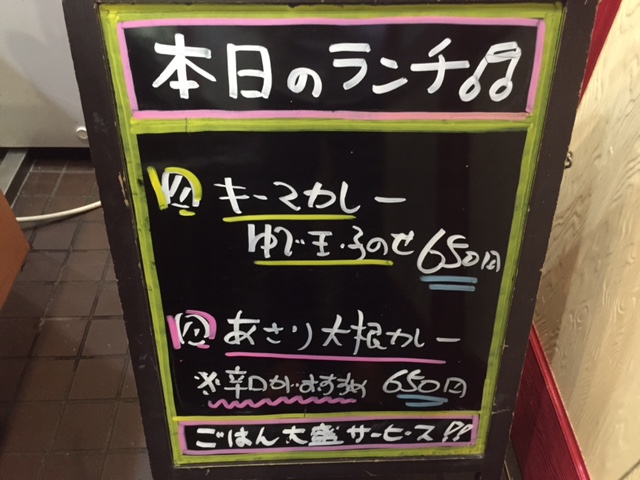 本日のランチ♫
キーマカレー
ゆで玉子のせ 650円
あさり大根カレー
※辛口がおすすめ 650円
ごはん大盛サービス!!